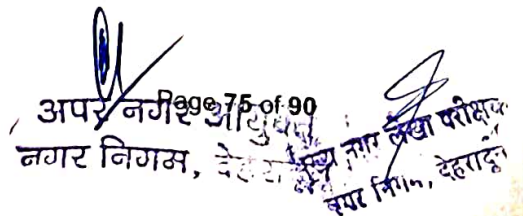 Page 75 of 90
अपर नगर आयुक्त
नगर निगम, देहरादून
मुख्य नगर लेखा परीक्षक
नगर निगम, देहरादून